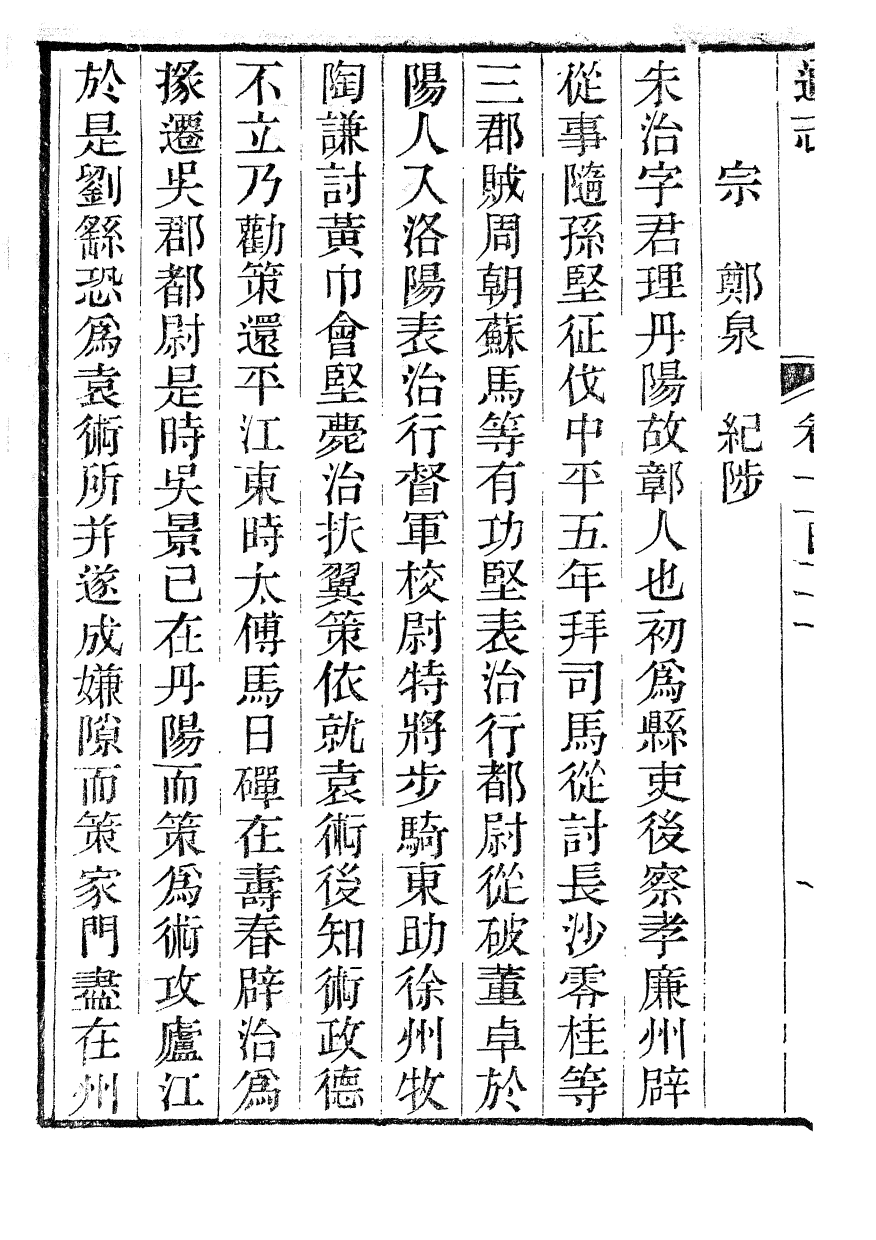 通志 卷一百二十一
宗 鄭泉 紀陟
朱治字君理丹陽故鄣人也初爲縣吏後察孝廉州辟
從事隨孫堅征伐中平五年拜司馬從討長沙零桂等
三郡賊周朝蘇馬等有功堅表治行都尉從破董卓於
陽人入洛陽表治行督軍校尉特將步騎東助徐州牧
陶謙討黃巾會堅薨治扶翼策依就袁術後知術政德
不立乃勸策還平江東時太傅馬日磾在壽春辟治爲
掾遷吳郡都尉是時吳景已在丹陽而策爲術攻廬江
於是劉繇恐爲袁術所并遂成嫌隙而策家門盡在州